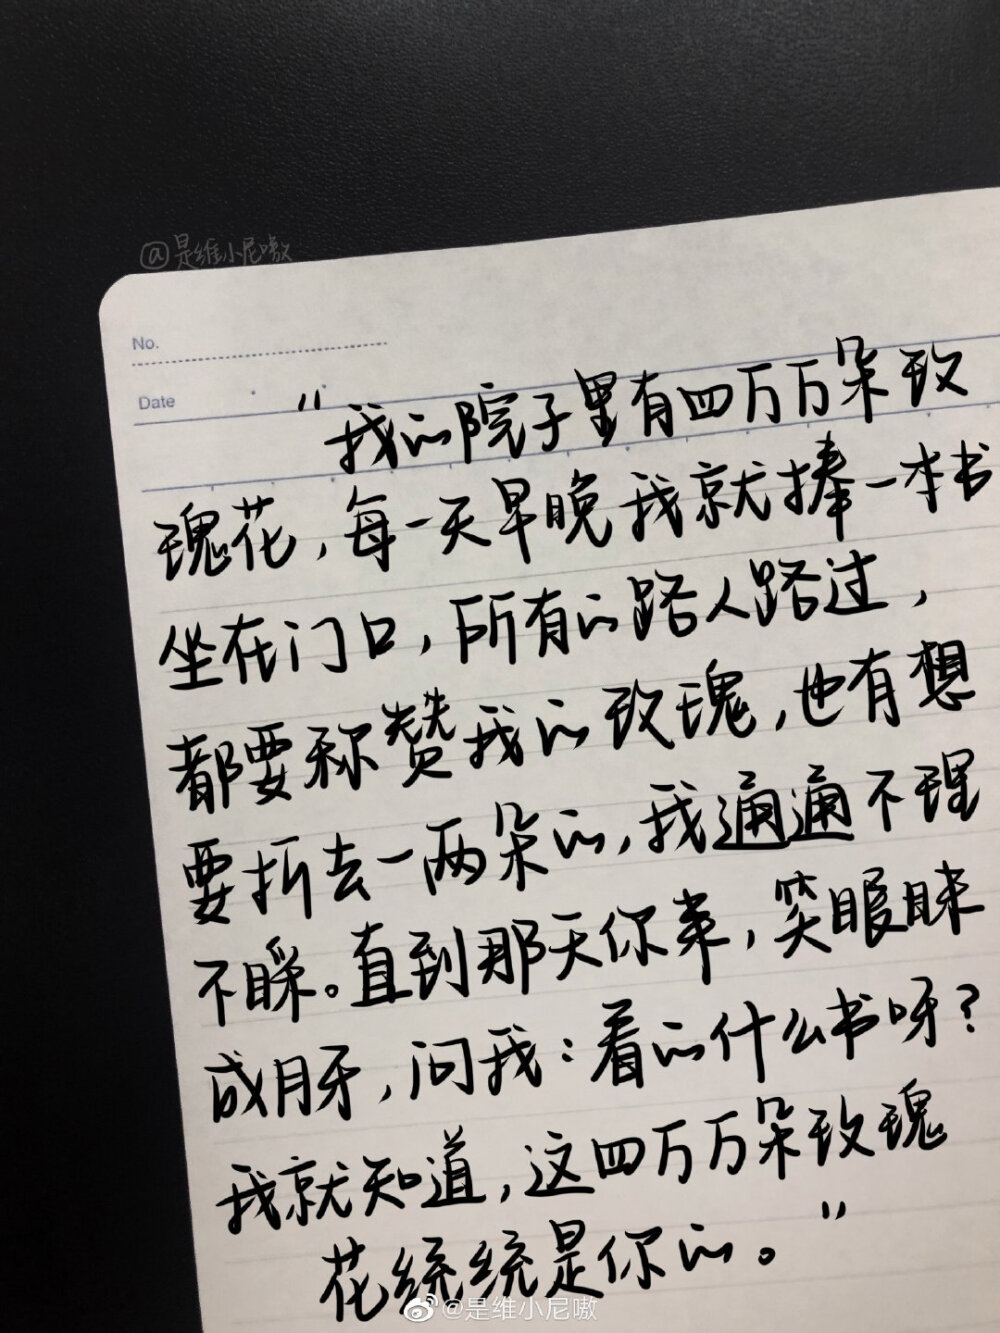 @是维小尼嗷
No.
Date
"我的院子里有四万万朵玫
瑰花,每一天早晚我就捧一本书
坐在门口,所有的路人路过,
都要称赞我的玫瑰,也有想
要折去一两朵的,我通通不理
不睬。直到那天你来,笑眼眯
成月牙,问我:看的什么书呀?
我就知道,这四万万朵玫瑰
花统统是你的。"
@是维小尼嗷